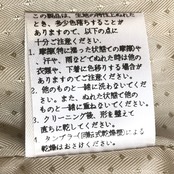 この製品は、生地の特性上ぬれた
とき、多少色落ちすることが
ありますので、以下の点に
十分ご注意ください。
1. 摩擦(特に湿った状態での摩擦)や
汗や、雨などでぬれた時は他の
衣類や、下着に色移りする場合が
ありますのでご注意ください。
2. 他のものと一緒に洗わないでくだ
さい。また、ぬれた状態で他のもの
と一緒に重ねないでください。
3. クリーニング後、形を整えて
直ちに乾してください。
4. タンブラー(回転式乾燥)による
乾燥はおさけください。